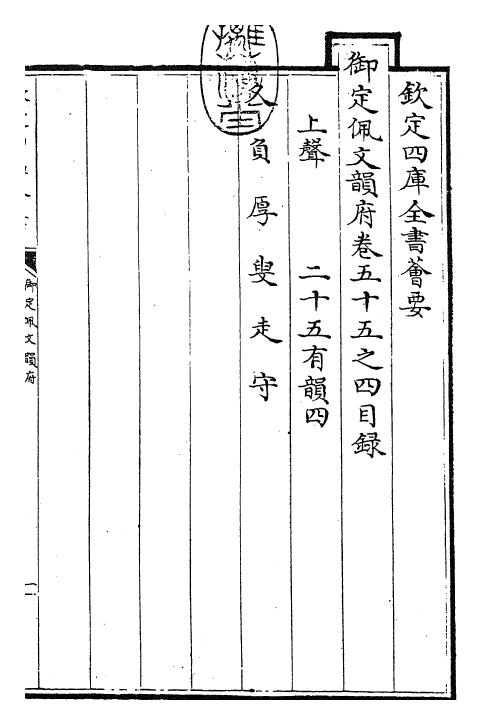 欽定四庫全書薈要
御定佩文韻府卷五十五之四目録
上聲　二十五有韻四
久　負　厚　叟　走　守
御定佩文韻府